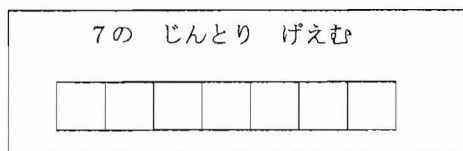 7の じんとり げえむ